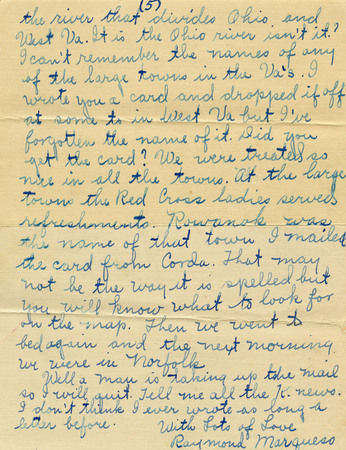 (5)
the river that divides Ohio and
West Va. It is the Ohio river isn't it?
I can't remember the names of any
of the large towns in the Va's. I
wrote you a card and dropped if off
at some to in West Va but I've
forgotten the name of it. Did you
get the card? We were treated so
nice in all the towns. At the large
towns the Red Cross ladies served
refreshments. Rowanok was
the name of that town I mailed
the card from Corda. That may
not be the way it is spelled but
you will know what to look for
on the map. Then we went to
bed again and the next morning
we were in Norfolk
Well a man is taking up the mail
so I will quit. Tell me all the news.
I don't think I ever wrote as long a
letter before.
With Lots of Love
Raymond Marqueso